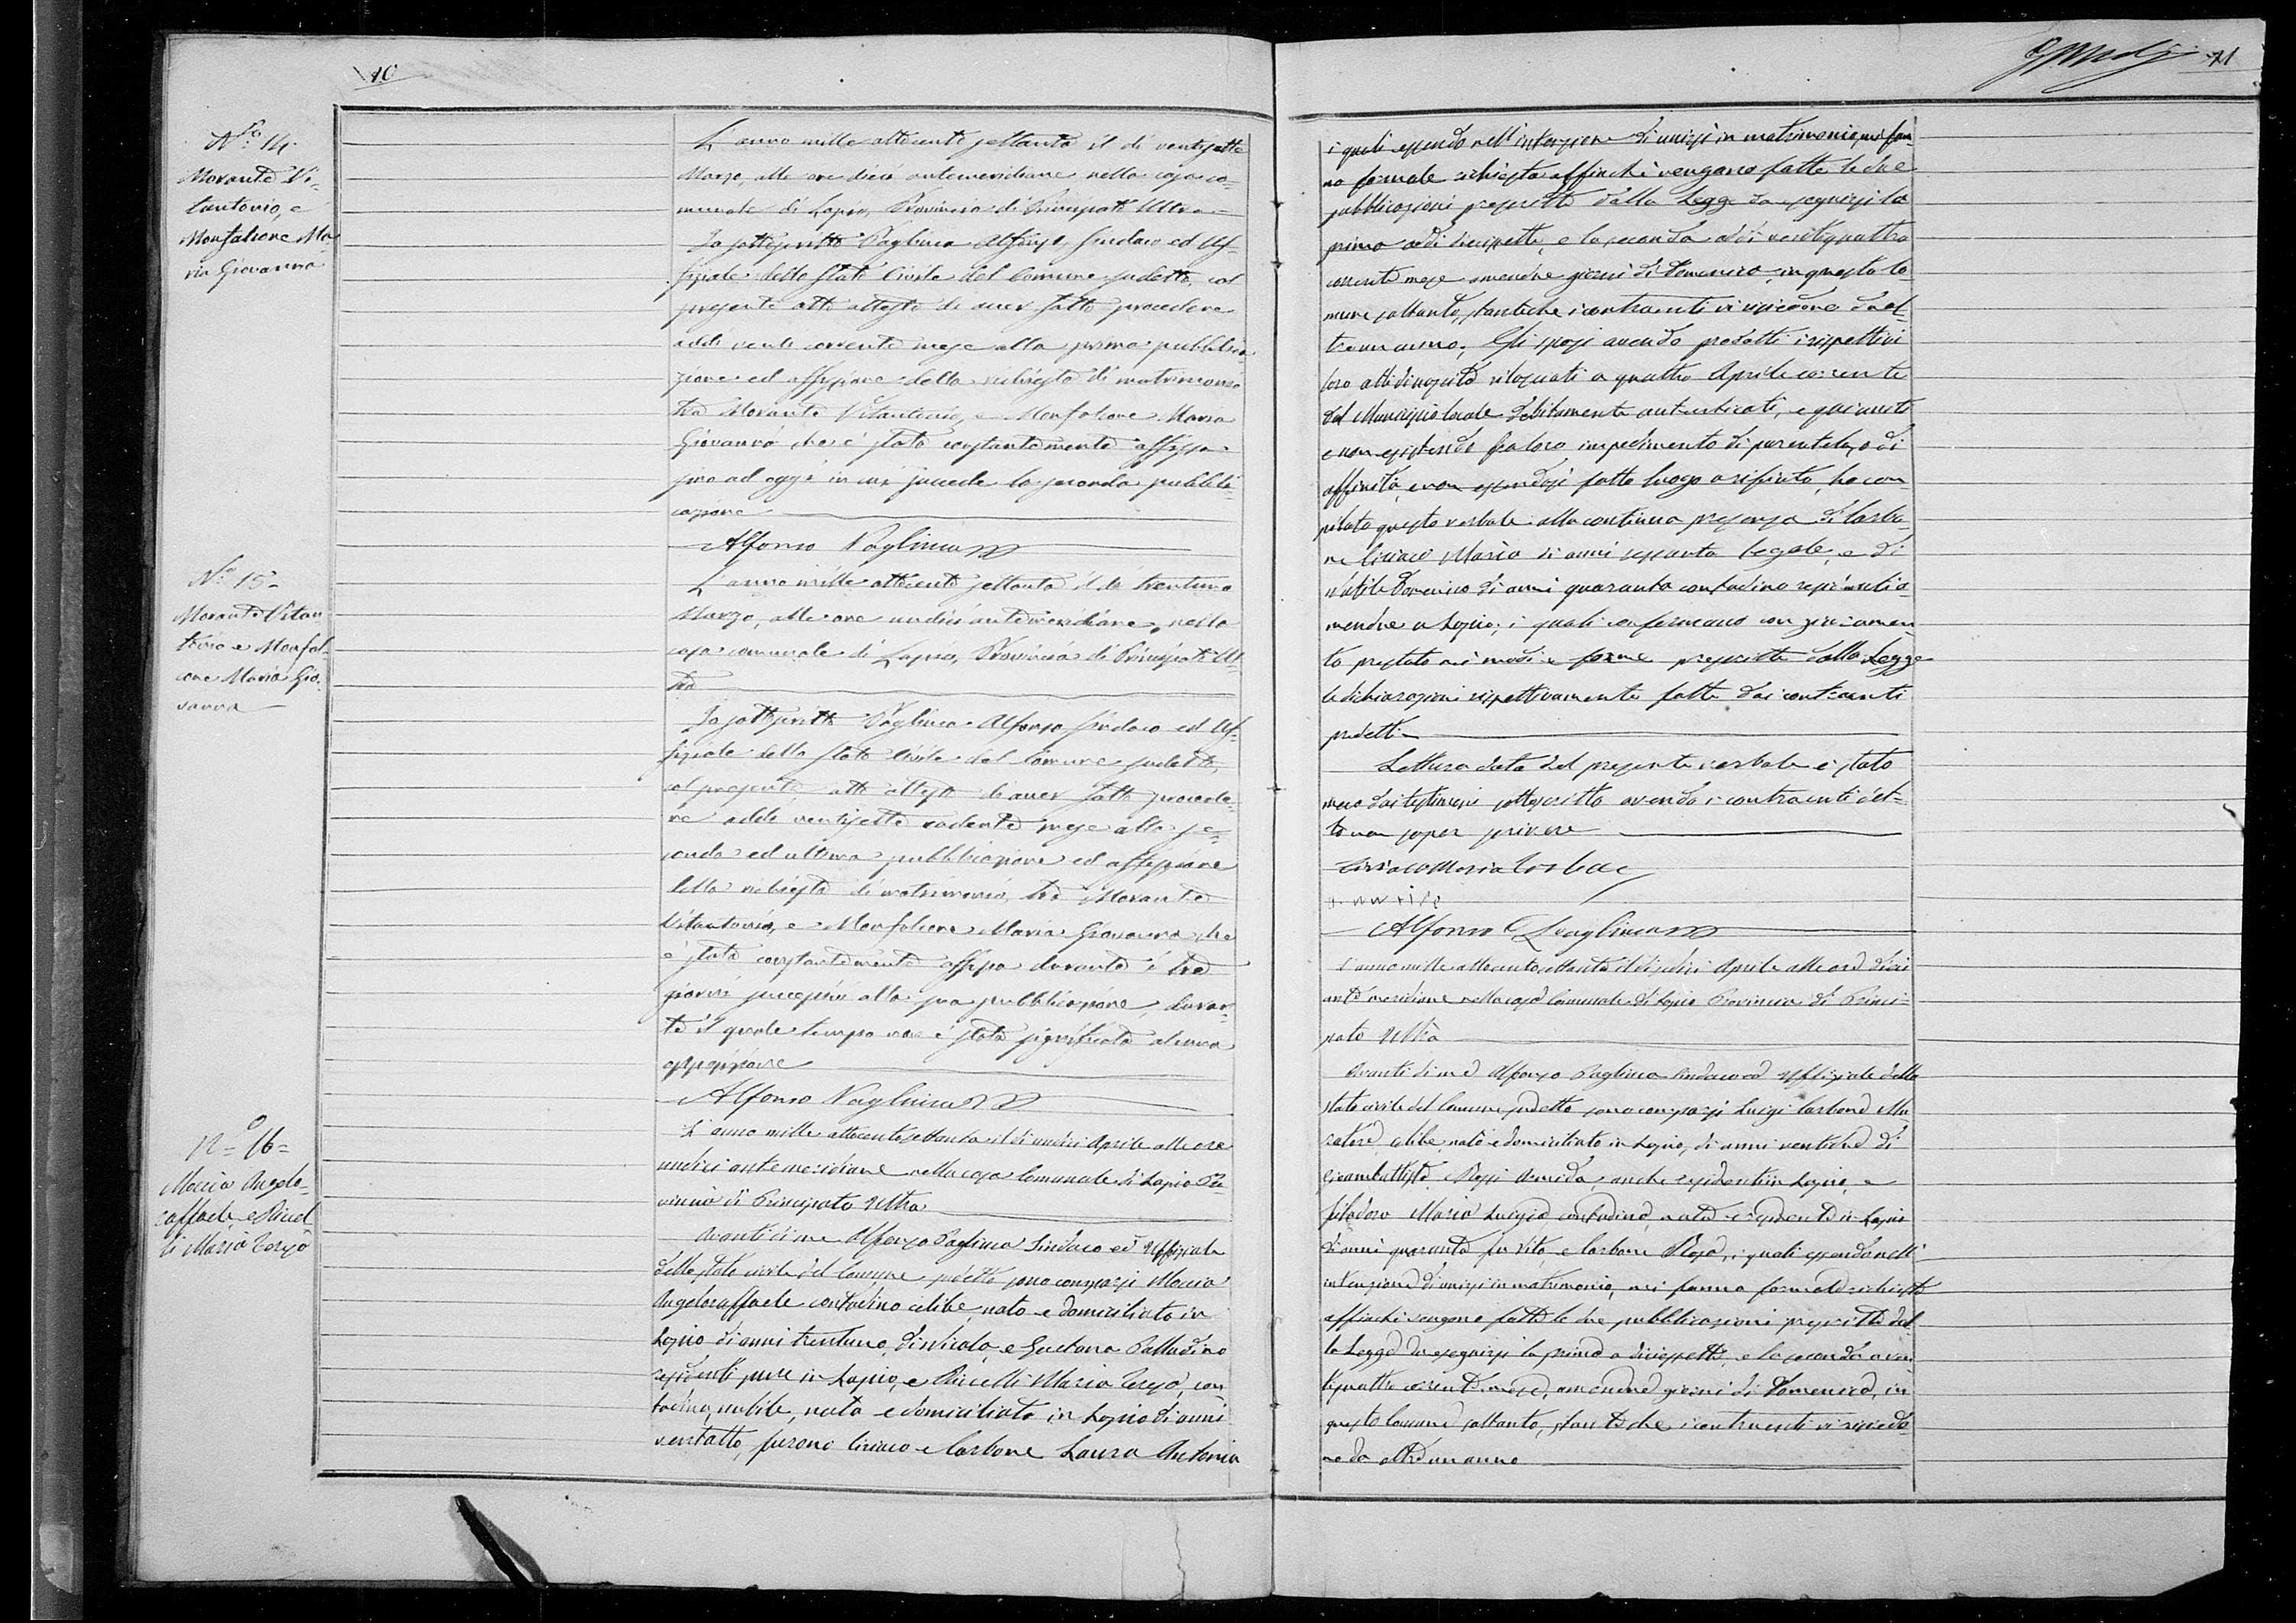 10
N.º 14.
Morante Vi-
tantonio, e
Monfalcone Ma
ria Giovanna
L'anno mille ottocento settanta il dì ventisette
Marzo, alle ore dieci antemeridiane nella casa co-
munale di Lapio, Provincia di Principato Ultra
Io sottoscritto Vaglieca Alfonso, Sindaco ed Uf-
fiziale dello Stato Civile del Comune sudetto, col
presente atto attesto di aver fatto procedere
addì venti corrente mese alla prima pubblica-
zione ed affissione della richiesta di matrimonio
tra Morante Vitantonio, e Monfalcone Maria
Giovanna che è stata costantemente affissa
sino ad oggi in cui succede la seconda pubbli-
cazione
Alfonso
N.º 15
Morante Vitan
tonio e Monfal-
cone Maria Gio-
vanna
L'anno mille ottocento settanta il dì trentuno
Marzo, alle ore undici antemeridiane, nella
casa comunale di Lapio, Provincia di Principato Ul
tra
Io sottoscritto Alfonso Sindaco ed Uf-
fiziale dello Stato Civile del Comune sudetto,
col presente atto attesto di aver fatto procede-
re addì ventisette cadente mese alla se-
conda ed ultima pubblicazione ed affissione
della richiesta di matrimonio, tra Morante
Vitantonio, e Monfalcone Maria Giovanna che
è stata costantemente affissa durante i tre
giorni successivi alla sua pubblicazione, duran-
te il quale tempo non è stata significata alcuna
opposizione
Alfonso
N.º 16=
Moccia Angelo-
raffaele, e Riccel-
li Maria Teresa
L'anno mille ottocento settanta il dì undici Aprile alle ore
undici antemeridiane nella casa Comunale di Lapio Pro
vincia di Principato Ultra
Avanti di me Alfonso Sindaco ed Uffiziale
dello stato civile del Comune sudetto sono comparsi Moccia
Angeloraffaele contadino celibe, nato e domiciliato in
Lapio di anni trentuno, di Nicola, e Gaetana Palladino
residenti pure in Lapio, e Riccelli Maria Teresa, con
tadina, nubile, nata e domiciliata in Lapio di anni
ventotto, furono Ciriaco e Carbone Laura Antonia
11
i quali essendo nell'intenzione di unirsi in matrimonio, mi fan-
no formale richiesta affinchè vengano fatte le due
pubblicazioni prescritte dalla Legge da eseguirsi la
prima addì diecissette, e la seconda addì ventiquattro
corrente mese amendue giorni di Domenica, in questo Co-
mune soltanto, stantechè i contraenti vi risiedono da ol-
tre un anno. Gli sposi avendo prodotti i rispettivi
loro atti di nascita rilasciati a quattro Aprile corrente
dal Municipio locale debitamente autenticati, e
e non esistendo fra loro impedimento di parentela, o di
affinità, e non essendosi fatto luogo a rifiuto, ho com
pilato questo verbale alla continua presenza di Carbo-
ne Ciriaco Maria di anni sessanta legale, e di
Domenico di anni quaranta contadino residenti a-
mendue a Lapio; i quali confermano con giuramen-
to prestato nei modi e forme prescritte dalla Legge
le dichiarazioni rispettivamente fatte dai contraenti
sudetti
Lettura data del presente verbale è stato
meco dai testimoni sottoscritto avendo i contraenti det-
to non saper scrivere
Ciriaco Maria Carbone
Alfonso
L'anno mille ottocento settanta il dì sedici Aprile alle ore dieci
ante meridiane nella casa Comunale di Lapio Provincia di Princi-
pato Ultra
Avanti di me Alfonso Sindaco ed Uffiziale dello
stato civile del Comune sudetto sono comparsi Luigi Carbone Mu
ratore, celibe, nato e domiciliato in Lapio, di anni ventidue di
Giambattista e Rossi Armida, anche residenti in Lapio, e
Filadoro Maria Luigia, contadina, nata e residente in Lapio
di anni quaranta fu Vito, e Carbone Rosa, i quali essendo nell'
intenzione di unirsi in matrimonio, mi fanno formale richiesta
affinchè vengano fatte le due pubblicazioni prescritte dal-
la Legge da eseguirsi la prima a diecissette, e la seconda a ven
tiquattro corrente mese, amendue giorni di Domenica, in
questo Comune soltanto, stante che i contraenti vi risiedo
no da oltre un anno